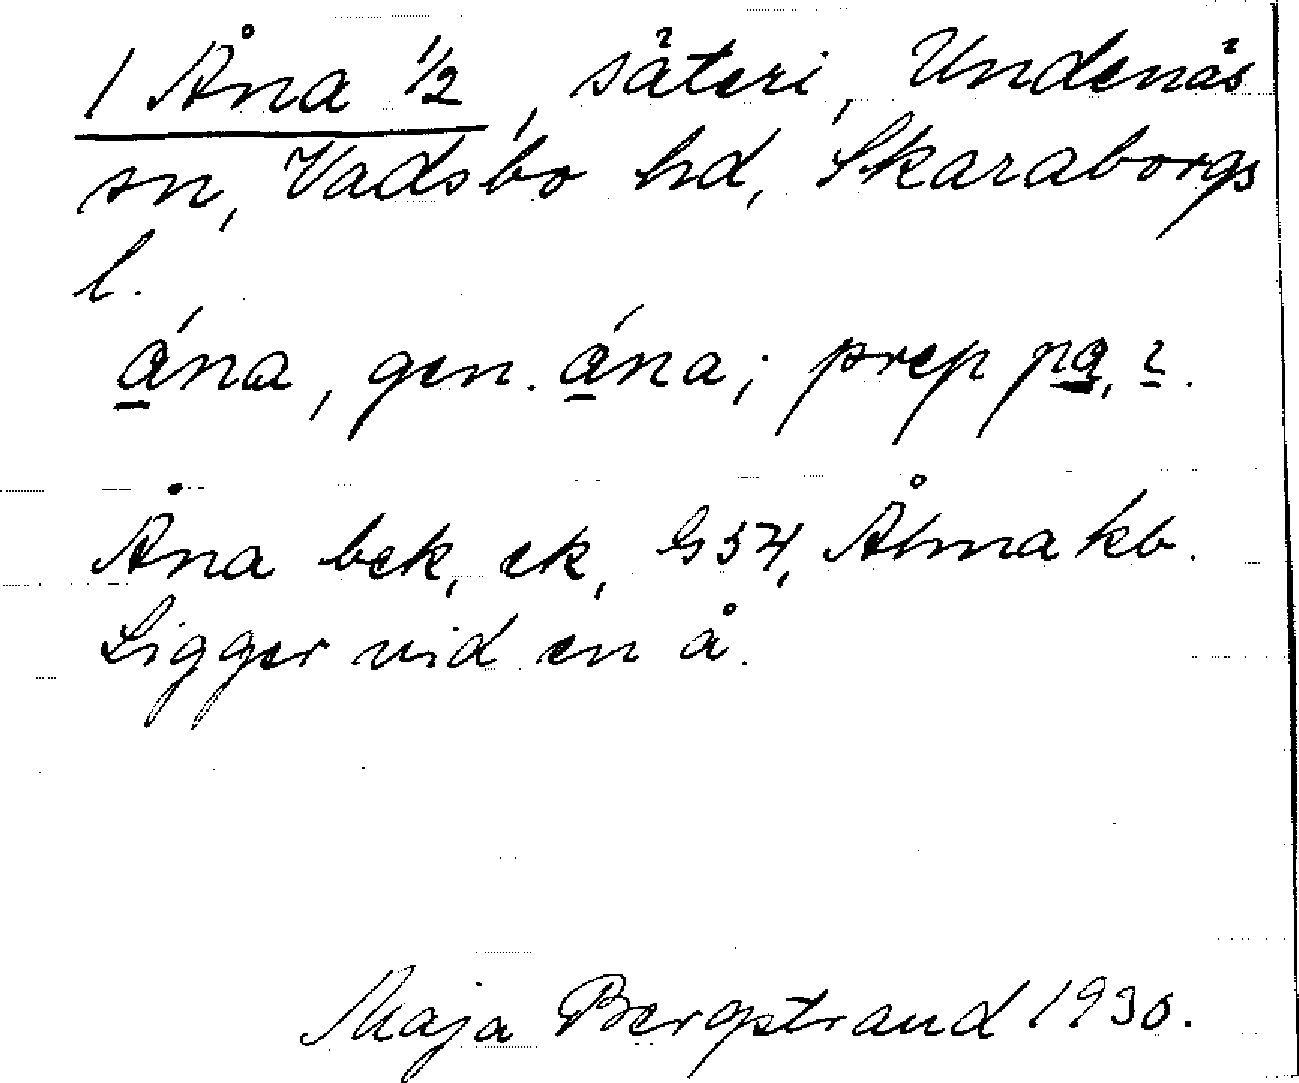 1 Åna 1/2, säteri, Undenäs
sn, Vadsbo hd, Skaraborgs
l.
ána, gen. ána; prep pa, i.
Åna bek, ek, G54, Ålmakb.
Ligger vid en å.
Maja Bergstrand 1930.